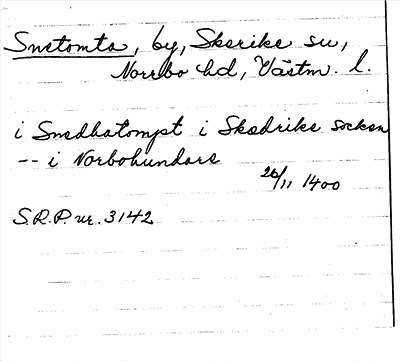 Snetomta, by, Skerike sn,
Norrbo hd, Västm. l.
i Smedhatompt i Skedrike socken
-- i Norbohundare
26/11 1400
S.R.P. nr. 3142